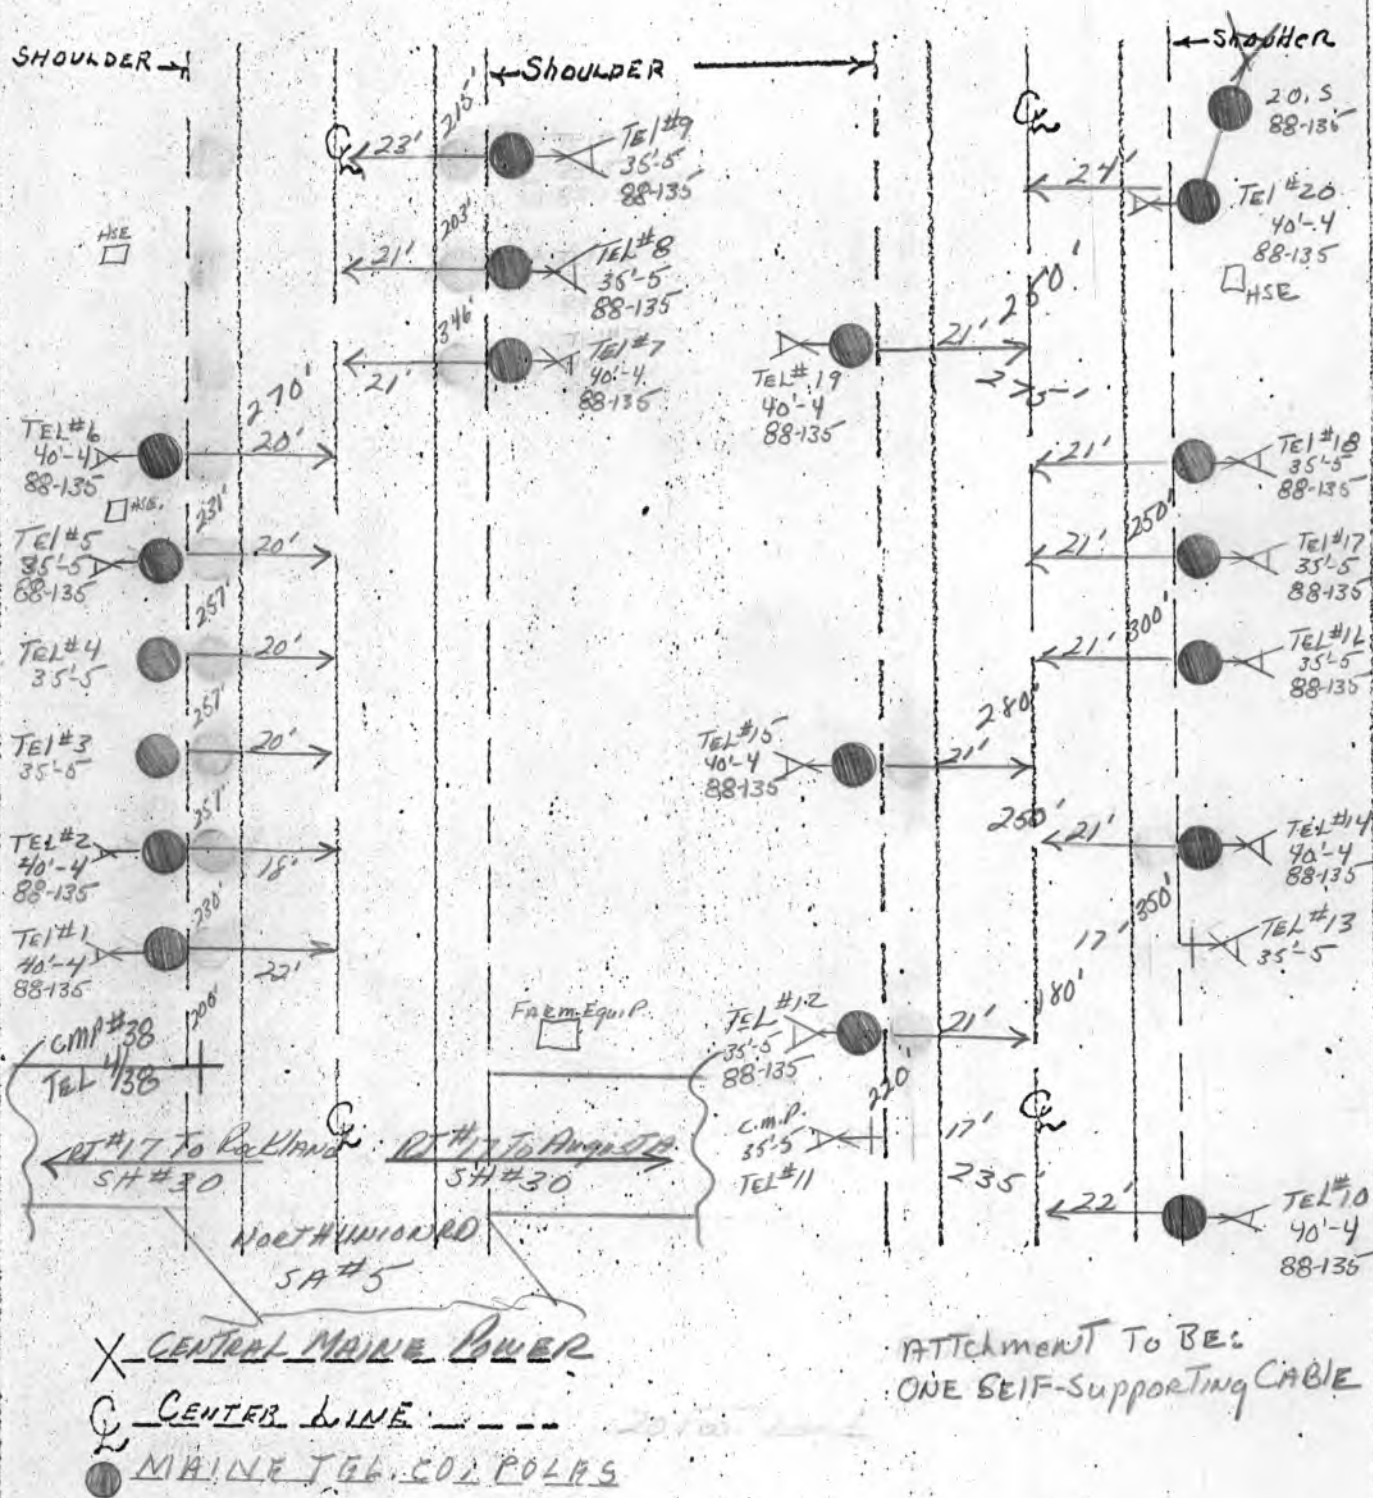 SHOULDER
SHOULDER
SHOULDER
℄ 23' 215' TEl #9
35'-5
88-135
HSE
21' 203' TEL #8
35'-5
88-135
21' 346' TEl #7
40'-4
88-135
TEL #6
40'-4
88-135
270'
20'
HSE.
231'
TEl #5
35'-5
88-135
20'
257'
TEL #4
35'-5
20'
257'
TEl #3
35'-5
20'
257'
TEL #2
40'-4
88-135
18'
230'
TEl #1
40'-4
88-135
22'
200'
CMP #38
TEL 4/38
RT #17 To Rockland
SH #30
℄
RT #17 To Augusta
SH #30
NORTH UNION RD
SA #5
FARM-EquiP.
℄
20.S
88-135
24'
TEl #20
40'-4
88-135
HSE
250'
21'
TEL #19
40'-4
88-135
275'
21'
TEl #18
35'-5
88-135
250'
21'
TEl #17
35'-5
88-135
300'
21'
35'-5
88-135
280'
TEL #15
40'-4
88-135
21'
250'
21'
TEL #14
40'-4
88-135
350'
17'
TEL #13
35'-5
180'
TEL #12
35'-5
88-135
21'
220'
C.M.P.
35'-5
TEL #11
17'
℄
235
22'
TEL #10
40'-4
88-135
X CENTRAL MAINE POWER
℄ CENTER LINE
MAINE TEL. CO. POLES
ATTChmenT To BE:
ONE SElF-SuppORTing CABlE